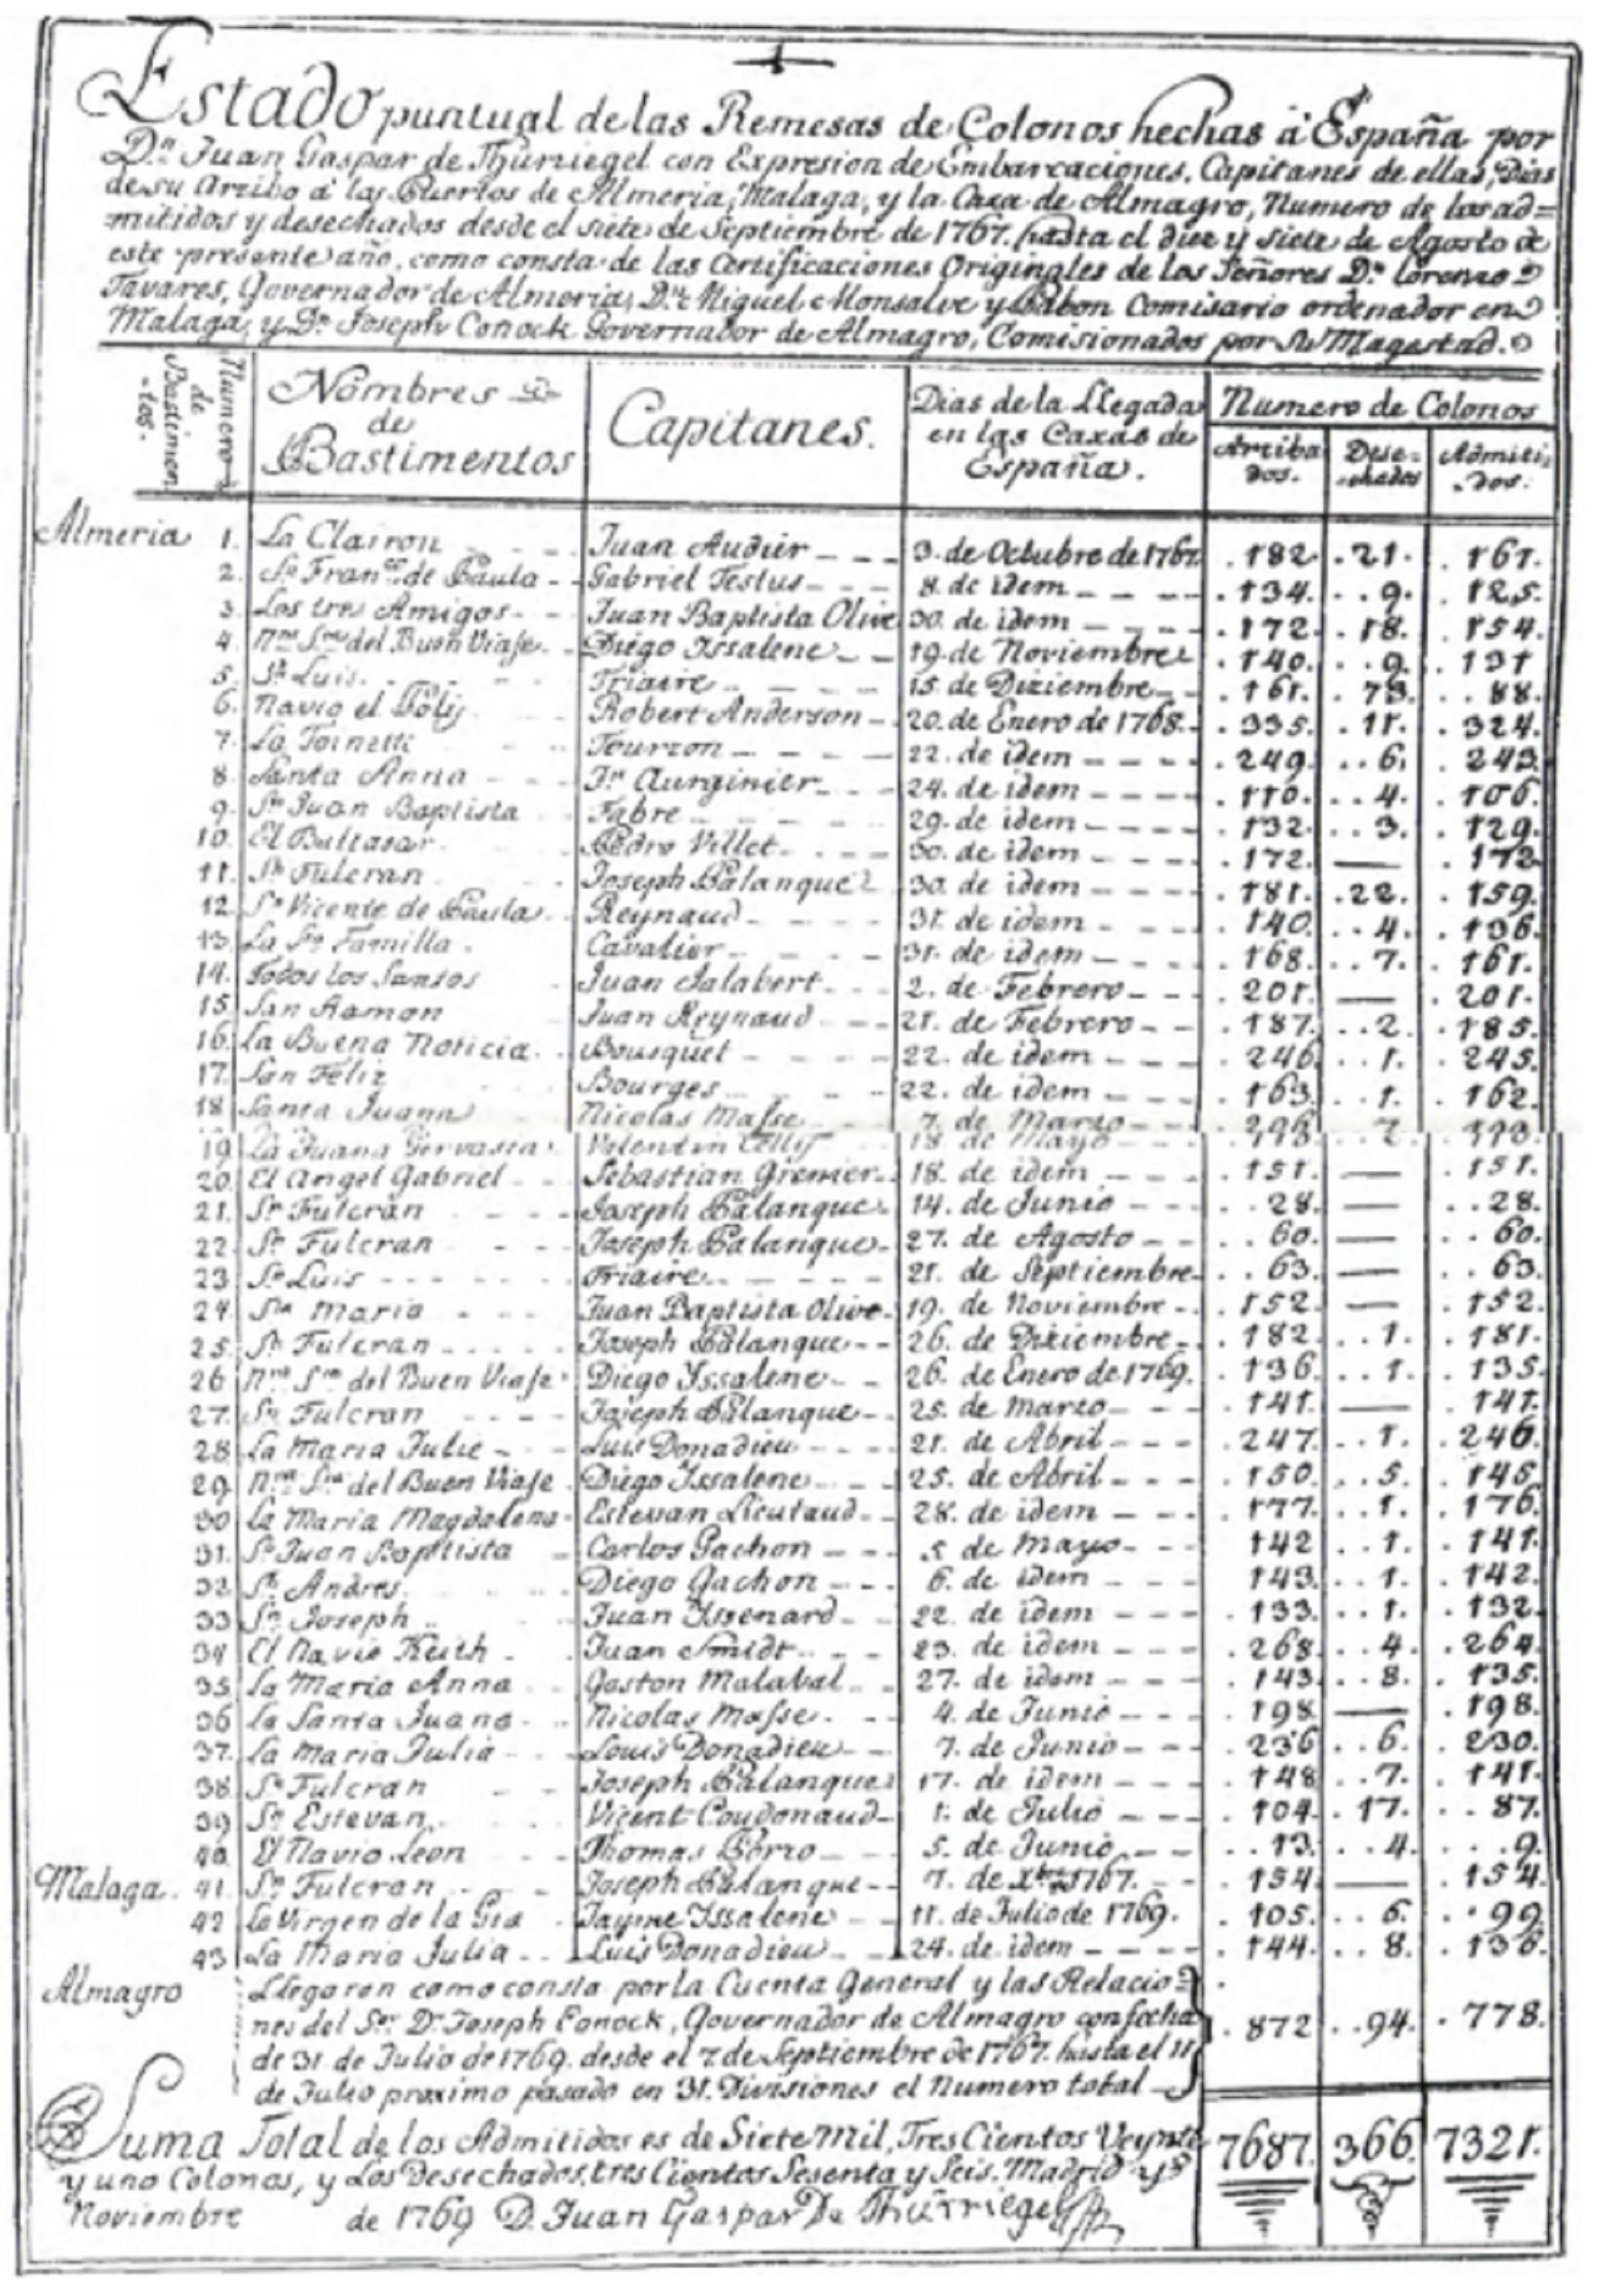 Estado puntual de las Remesas de Colonos hechas á España por
Dn. Juan Gaspar de Thürriegel con Expresion de Embarcaciones, Capitanes de ellas, Dias
de su Arribo á los Puertos de Almeria, Malaga, y la Caxa de Almagro, Numero de los ad=
mitidos y desechados desde el siete de Septiembre de 1767. hasta el diez y siete de Agosto de
este presente año, como consta de las Certificaciones Originales de los Señores Dn. Lorenzo
Tavares, Governador de Almeria, Dn. Miguel Monsalve y Pabon Comisario ordenador en
Malaga, y Dn. Joseph Conock Governador de Almagro, Comisionados por Su Magestad.
Numero de Bastimen-tos. Nombres de Bastimentos Capitanes. Dias de la Llegada en las Caxas de España. Numero de Colonos
Arribados. Desechados Admitidos.
Almeria 1. La Clairon Juan Audier 3. de Octubre de 1767 182. 21. 161.
2. Sn. Franco. de Paula Gabriel Testus 8. de idem 134. 9. 125.
3. Los tres Amigos Juan Baptista Olive 30. de idem 172. 18. 154.
4. Nra. Sra. del Buen Viaje Diego Issalene 19. de Noviembre 140. 9. 131
5. Sn. Luis. Triaire 15. de Diziembre 161. 73. 88.
6. Navio el Polij Robert Anderson 20. de Enero de 1768. 335. 11. 324.
7. La Toinetti Tourzon 22. de idem 249. 6. 243.
8. Santa Anna Jn. Aurginier 24. de idem 110. 4. 106.
9. Sn. Juan Baptista Fabre 29. de idem 132. 3. 129.
10. El Baltasar Pedro Villet 30. de idem 172. — 172
11. Sn. Fulcran Joseph Palanque 30. de idem 181. 22. 159.
12. Sn. Vicente de Paula Reynaud 31. de idem 140. 4. 136.
13. La Sa. Familla Cavalier 31. de idem 168. 7. 161.
14. Todos los Santos Juan Jalabert 2. de Febrero 201. — 201.
15. San Ramon Juan Reynaud 21. de Febrero 187. 2. 185.
16. La Buena Noticia. Bousquet 22. de idem 246. 1. 245.
17. San Feliz Bourges 22. de idem 163. 1. 162.
18 Santa Juana Nicolas Masse 7. de Marzo
19. La Juana Gervasia Valentin 18 de Mayo
20. El Angel Gabriel Sebastian Grenier 18. de idem 151. — 151.
21. Sn. Fulcran Joseph Palanque 14. de Junio 28. — 28.
22. Sn. Fulcran Joseph Palanque 27. de Agosto 60. — 60.
23. Sn. Luis Triaire 21. de Septiembre 63. — 63.
24. Sta. Maria Juan Baptista Olive 19. de Noviembre 152. — 152.
25. Sn. Fulcran Joseph Palanque 26. de Diziembre 182. 1. 181.
26 Nra. Sra. del Buen Viaje Diego Yssalene 26. de Enero de 1769. 136. 1. 135.
27. Sn. Fulcran Joseph Palanque 25. de Marzo 141. — 141.
28. La Maria Julie Luis Donadieu 21. de Abril 247. 1. 246.
29. Nra. Sra. del Buen Viaje Diego Yssalene 25. de Abril 150. 5. 145.
30 La Maria Magdalena Estevan Lieutaud 28. de idem 177. 1. 176.
31. Sn. Juan Baptista Carlos Gachon 5 de Mayo 142 1. 141.
32 Sn. Andres. Diego Gachon 6. de idem 143. 1. 142.
33 Sn. Joseph Juan Yssenard 22. de idem 133. 1. 132.
34 El Navio Keith Juan Smidt 23. de idem 268. 4. 264.
35 La Maria Anna Gaston Malabal 27. de idem 143. 8. 135.
36 La Santa Juana Nicolas Masse 4. de Junio 198. — 198.
37. La Maria Julia Louis Donadieu 7. de Junio 236 6. 230.
38. Sn. Fulcran Joseph Palanque 17. de idem 148 7. 141.
39. Sn. Estevan. Vicent Coudonaud 1. de Julio 104. 17. 87.
40. El Navio Leon Thomas Porro 5. de Junio 13. 4. 9.
Malaga. 41. Sn. Fulcran Joseph Palanque 7. de Xbre. 1767. 154. — 154.
42 La Virgen de la Gra Jayme Issalene 11. de Julio de 1769. 105. 6. 99.
43 La Maria Julia Luis Donadieu 24. de idem 144. 8. 136.
Almagro Llegaron como consta por la Cuenta General y las Relacio=
nes del Sor. Dn. Joseph Conock, Governador de Almagro con fecha 872 94. 778.
de 31. de Julio de 1769. desde el 7 de Septiembre de 1767. hasta el 11
de Julio proximo pasado en 31. Divisiones el Numero total
Suma Total de los Admitidos es de Siete Mil, Tres Cientos Veynte 7687. 366. 7321.
y uno Colonos, y Los Desechados, tres Cientos Sesenta y Seis. Madrid y
Noviembre de 1769 D. Juan Gaspar De Thürriegel